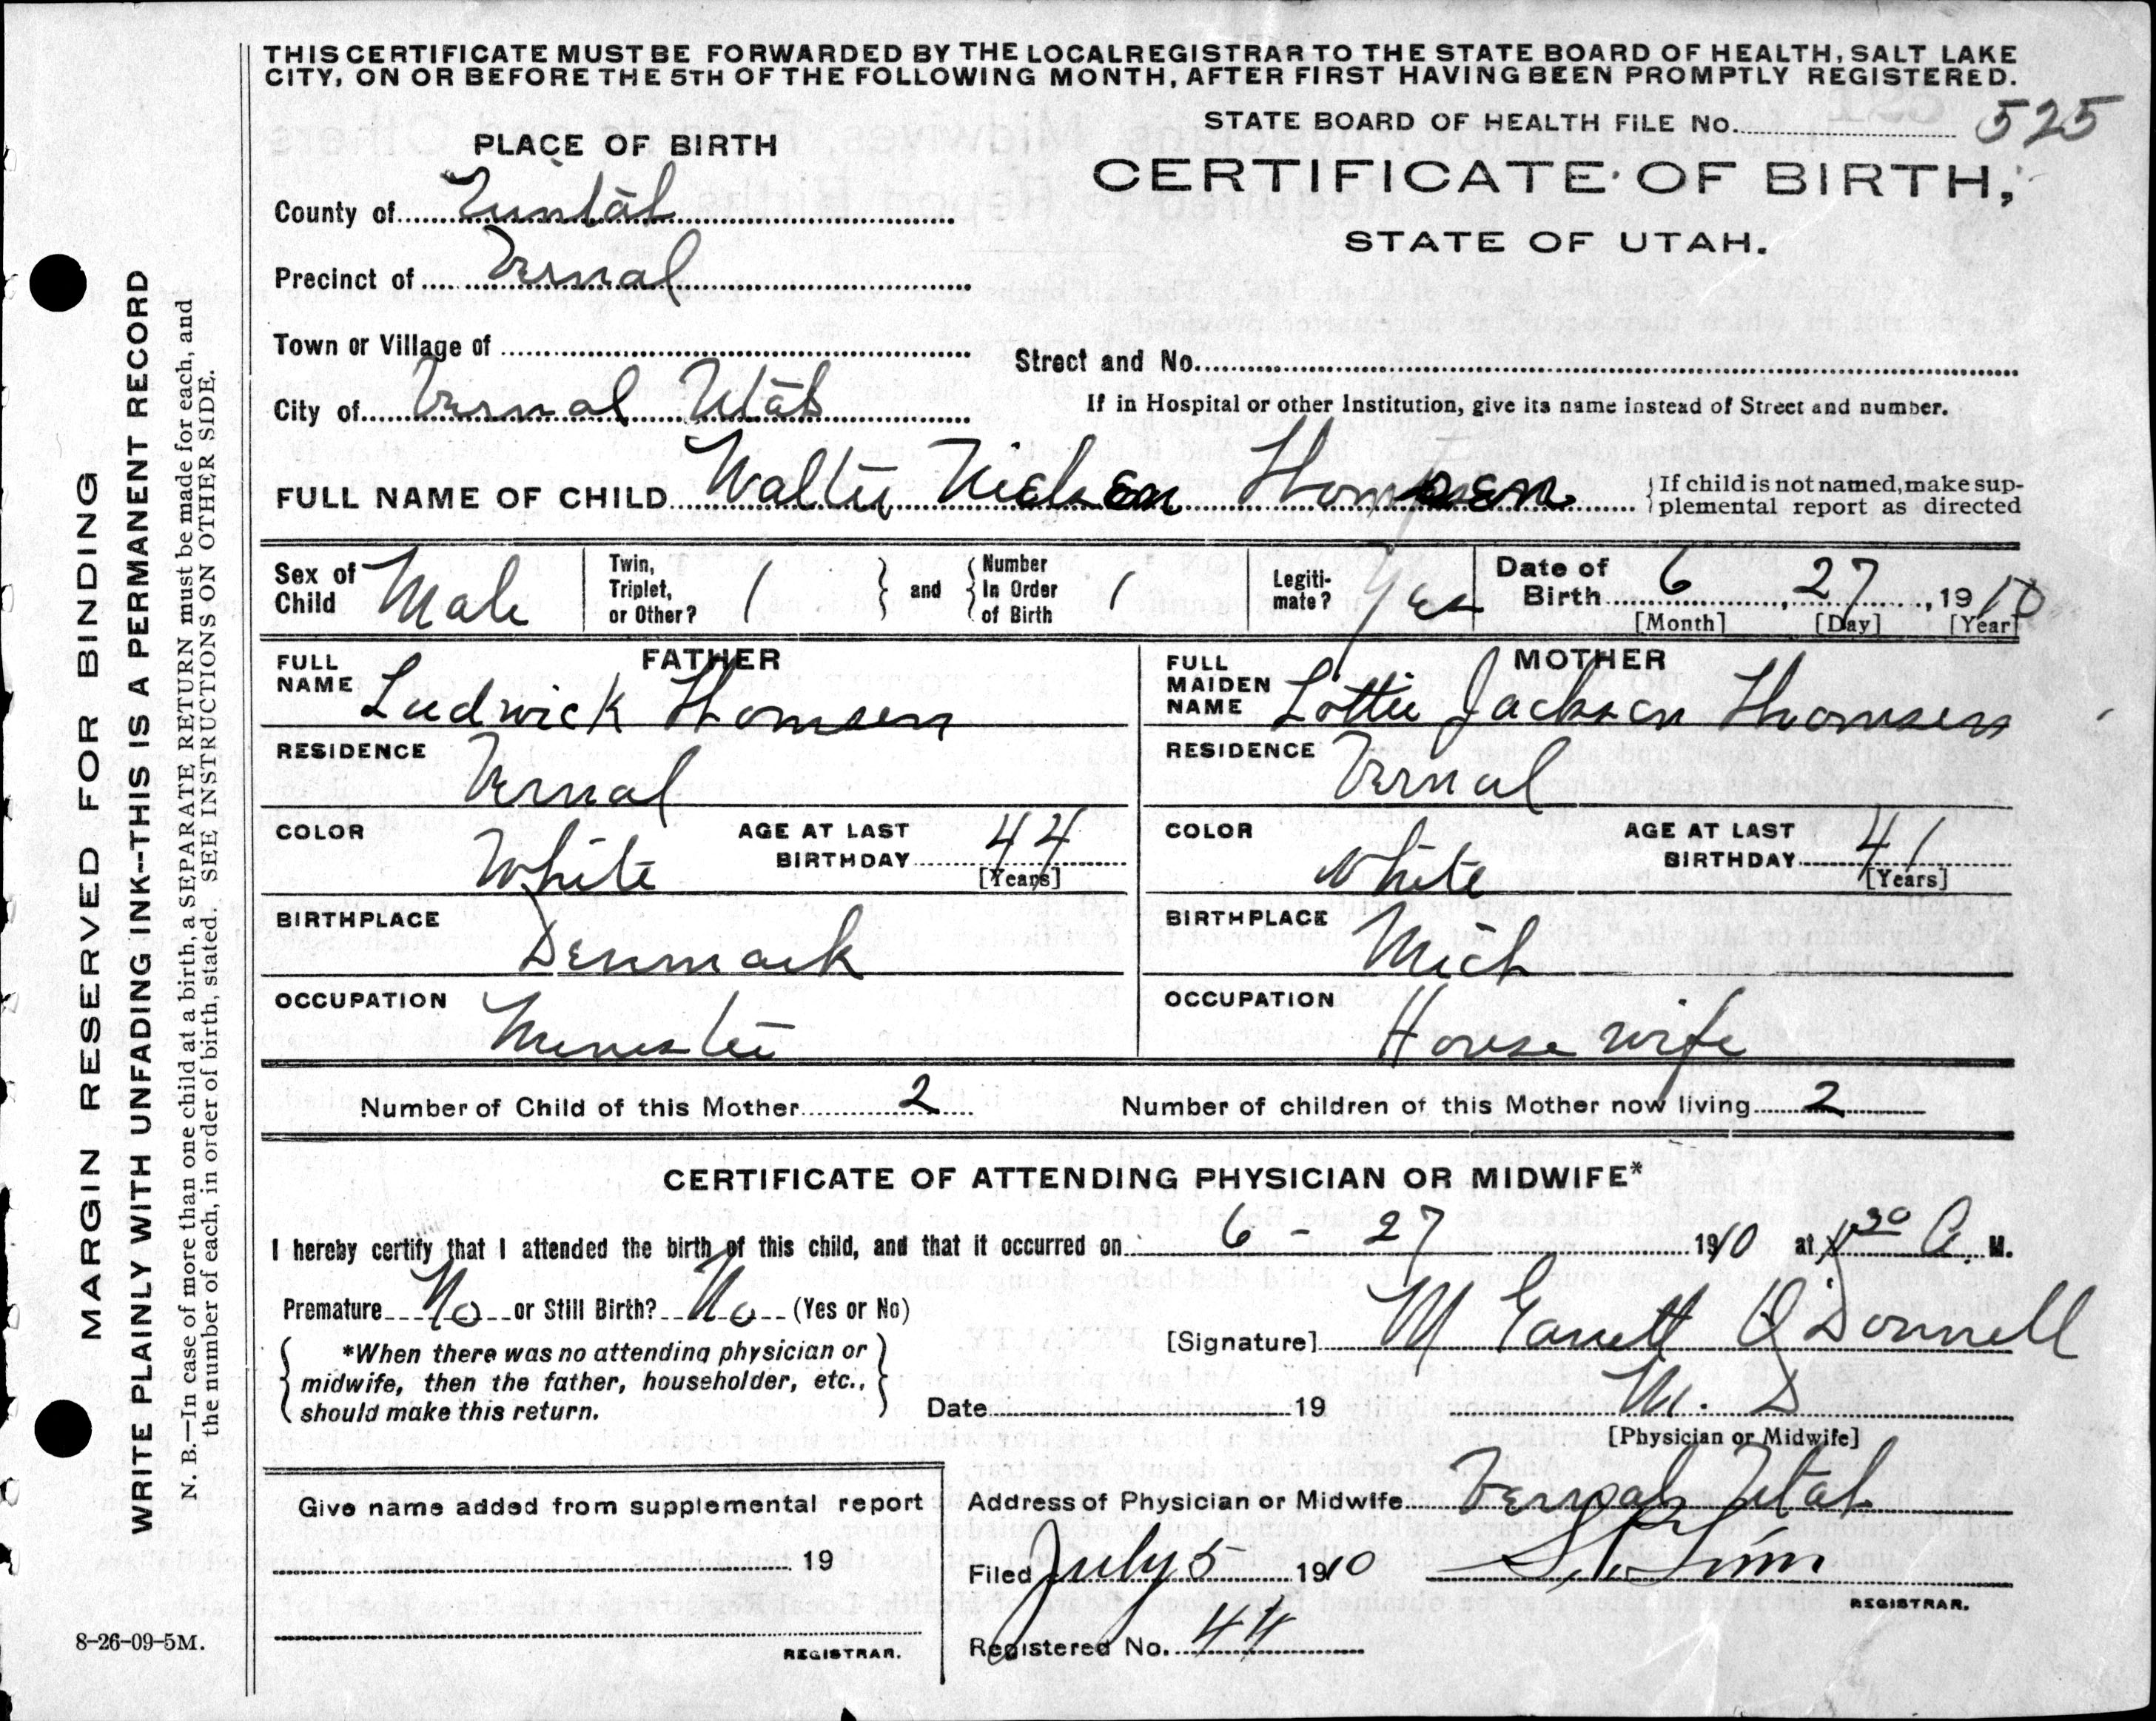 THIS CERTIFICATE MUST BE FORWARDED BY THE LOCAL REGISTRAR TO THE STATE BOARD OF HEALTH, SALT LAKE
CITY, ON OR BEFORE THE 5TH OF THE FOLLOWING MONTH, AFTER FIRST HAVING BEEN PROMPTLY REGISTERED.
STATE BOARD OF HEALTH FILE NO. 525
PLACE OF BIRTH
CERTIFICATE OF BIRTH,
STATE OF UTAH.
County of Uintah
Precinct of Vernal
Town or Village of
Street and No.
City of Vernal Utah
If in Hospital or other Institution, give its name instead of Street and number.
FULL NAME OF CHILD Walter Nielsen Thomsen
If child is not named, make sup-
plemental report as directed
Sex of Child Male
Twin, Triplet, or Other? 1
and
Number In Order of Birth 1
Legiti-mate? Yes
Date of Birth 6, 27, 1910
[Month] [Day] [Year]
FATHER
FULL NAME Ludwick Thomsen
MOTHER
FULL MAIDEN NAME Lottie Jackson Thomsen
RESIDENCE Vernal
RESIDENCE Vernal
COLOR White AGE AT LAST BIRTHDAY 44 [Years]
COLOR White AGE AT LAST BIRTHDAY 41 [Years]
BIRTHPLACE Denmark
BIRTHPLACE Mich
OCCUPATION Minister
OCCUPATION House wife
Number of Child of this Mother 2
Number of children of this Mother now living 2
CERTIFICATE OF ATTENDING PHYSICIAN OR MIDWIFE*
I hereby certify that I attended the birth of this child, and that it occurred on 6 - 27 1910 at 30 A. M.
Premature No or Still Birth? No (Yes or No)
*When there was no attending physician or
midwife, then the father, householder, etc.,
should make this return.
[Signature] M Garrett O'Donnell
Date 19
M. D
[Physician or Midwife]
Give name added from supplemental report
19
REGISTRAR.
Address of Physician or Midwife Vernal Utah
Filed July 5 1910
REGISTRAR.
Registered No. 44
8-26-09-5M.
MARGIN RESERVED FOR BINDING
WRITE PLAINLY WITH UNFADING INK--THIS IS A PERMANENT RECORD
N. B.—In case of more than one child at a birth, a SEPARATE RETURN must be made for each, and
the number of each, in order of birth, stated. SEE INSTRUCTIONS ON OTHER SIDE.